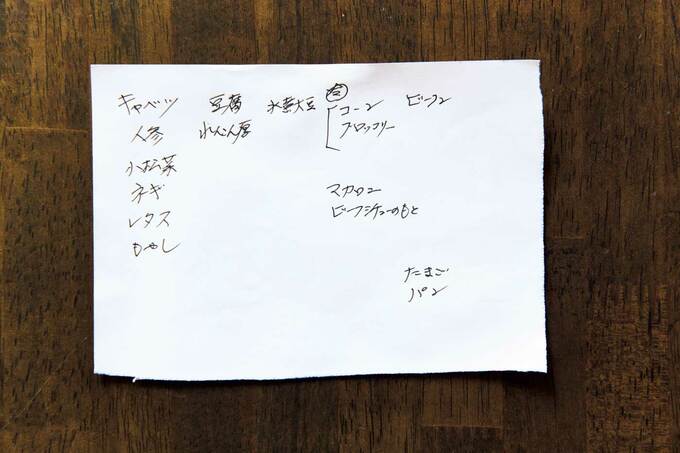 キャベツ 豆腐 水煮大豆 コーン ビーフン
人参 ブロッコリー
小松菜
ネギ マカロニ
レタス ビーフシチューのもと
もやし
たまご
パン